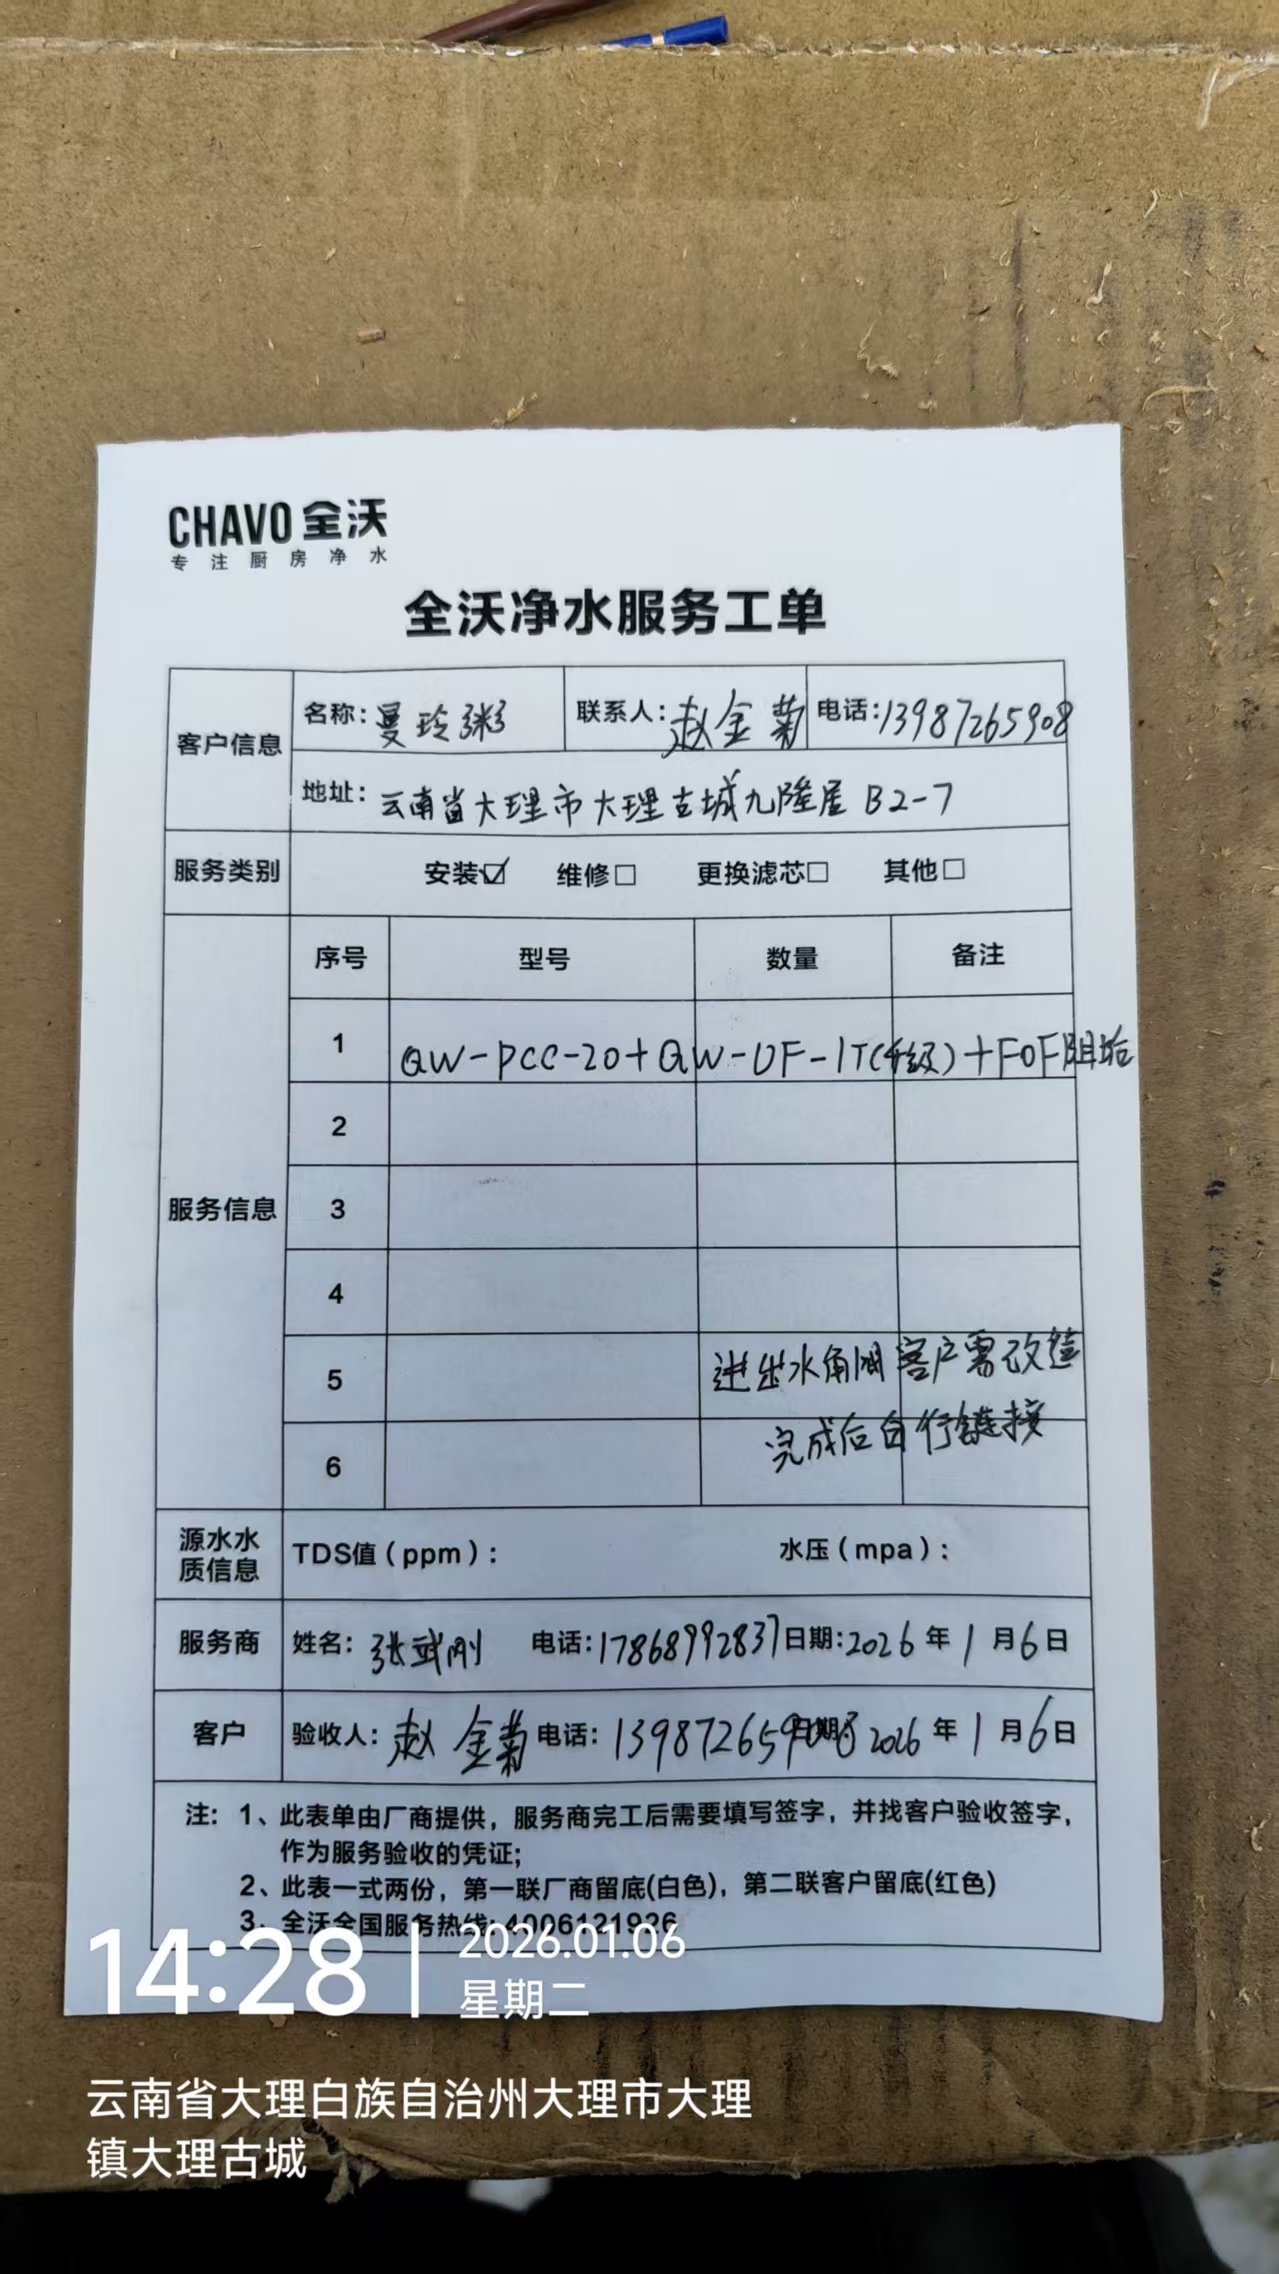 CHAVO 全沃
专注厨房净水
全沃净水服务工单
客户信息 名称：曼玲粥 联系人：赵金菊 电话：13987265908
地址：云南省大理市大理古城九隆居B2-7
服务类别 安装☑ 维修□ 更换滤芯□ 其他□
服务信息 序号 型号 数量 备注
1 QW-PCC-20+QW-UF-1T(升级)+FOF阻垢
2
3
4
5 进出水角阀客户需改造
6 完成后自行链接
源水水质信息 TDS值（ppm）： 水压（mpa）：
服务商 姓名：张武刚 电话：17868992837 日期：2026年1月6日
客户 验收人：赵金菊 电话：13987265908 日期：2026年1月6日
注：1、此表单由厂商提供，服务商完工后需要填写签字，并找客户验收签字，
作为服务验收的凭证；
2、此表一式两份，第一联厂商留底(白色)，第二联客户留底(红色)
3、全沃全国服务热线：4006121926
14:28 2026.01.06
星期二
云南省大理白族自治州大理市大理
镇大理古城